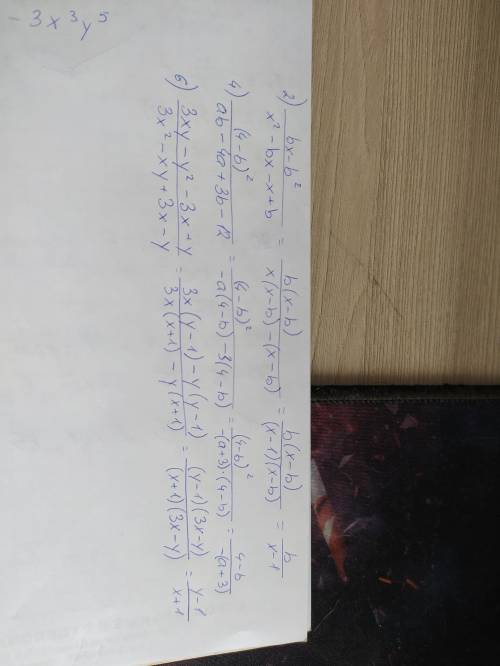 - 3x³y⁵
2) (bx-b²)/(x² - bx - x + b) = (b(x-b))/(x(x-b) - (x-b)) = (b(x-b))/((x-1)(x-b)) = b/(x-1)
4) (4-b)²/(ab - 4a + 3b - 12) = (4-b)²/(-a(4-b) - 3(4-b)) = (4-b)²/(-(a+3)·(4-b)) = (4-b)/(-(a+3))
6) (3xy - y² - 3x + y)/(3x² - xy + 3x - y) = (3x(y-1) - y(y-1))/(3x(x+1) - y(x+1)) = ((y-1)(3x-y))/((x+1)(3x-y)) = (y-1)/(x+1)